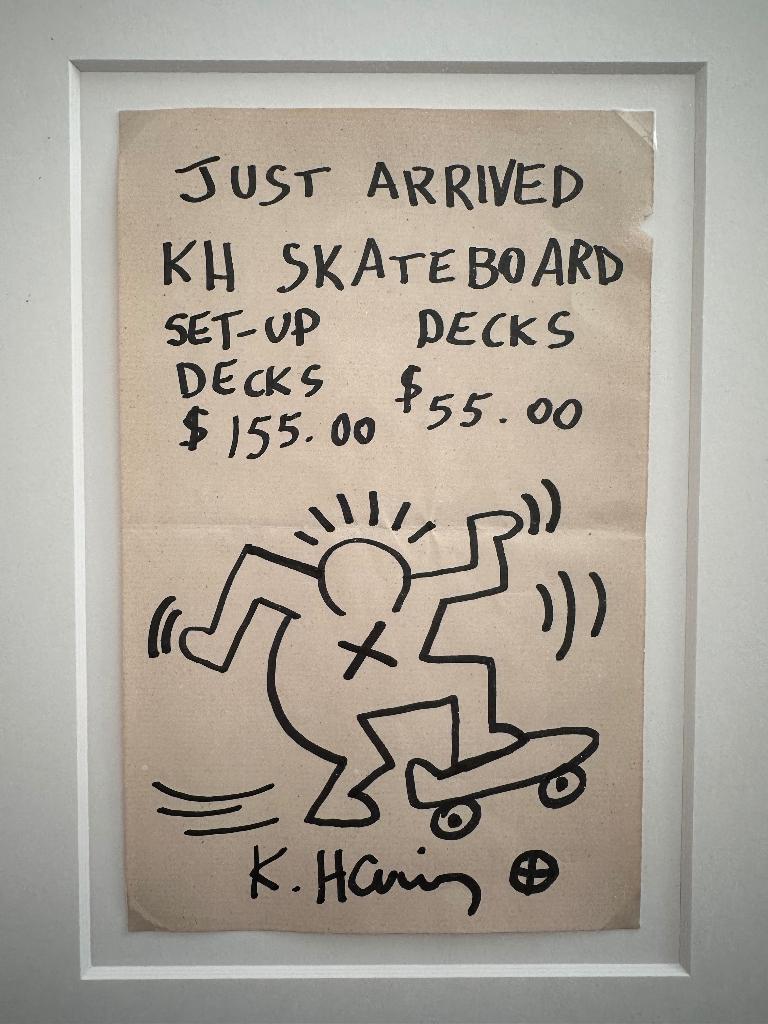 JUST ARRIVED
KH SKATEBOARD
SET-UP DECKS
DECKS $55.00
$155.00
K. Haring